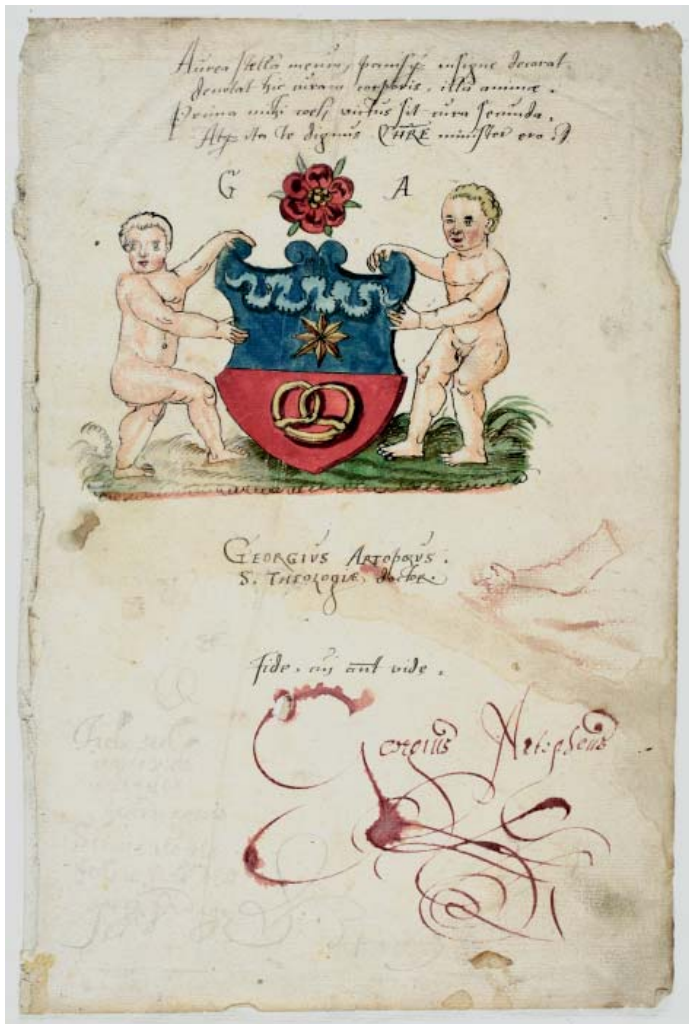 Aurea stella meum, panisq̃ insigne decorat
denotat hic curam corporis, illa animæ.
Prima mihi coeli, victus sit cura secunda.
Atq̃ ita te dignus CHRE minister ero.
G A
GEORGIVS ARTOPŒVS.
S. THEOLOGIÆ doctor.
fide. cui aut vide.
Georgius Artopheus